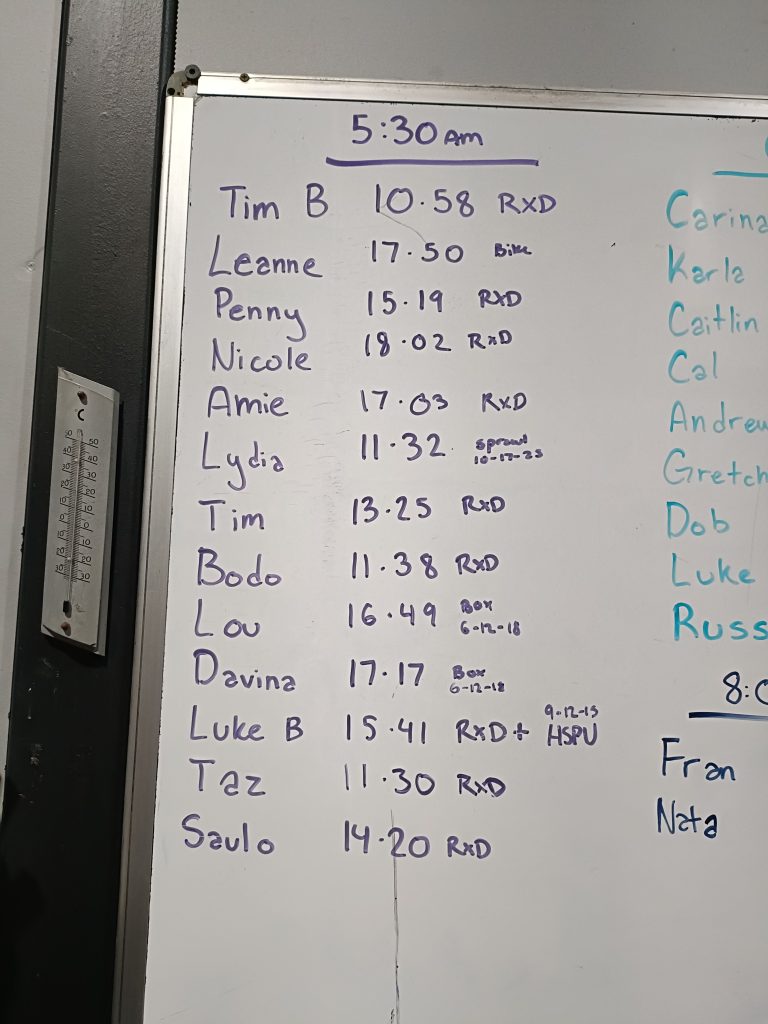 5:30 AM
Tim B 10.58 RXD
Leanne 17.50 Bike
Penny 15.19 RXD
Nicole 18.02 RXD
Amie 17.03 RXD
Lydia 11.32 sprawl 10-17-23
Tim 13.25 RXD
Bodo 11.38 RXD
Lou 16.49 Box 6-12-18
Davina 17.17 Box 6-12-18
Luke B 15.41 RXD + 9-12-15 HSPU
Taz 11.30 RXD
Saulo 14.20 RXD
Carina
Karla
Caitlin
Cal
Andrew
Gretch
Dob
Luke
Russ
8:0
Fran
Nata
°C